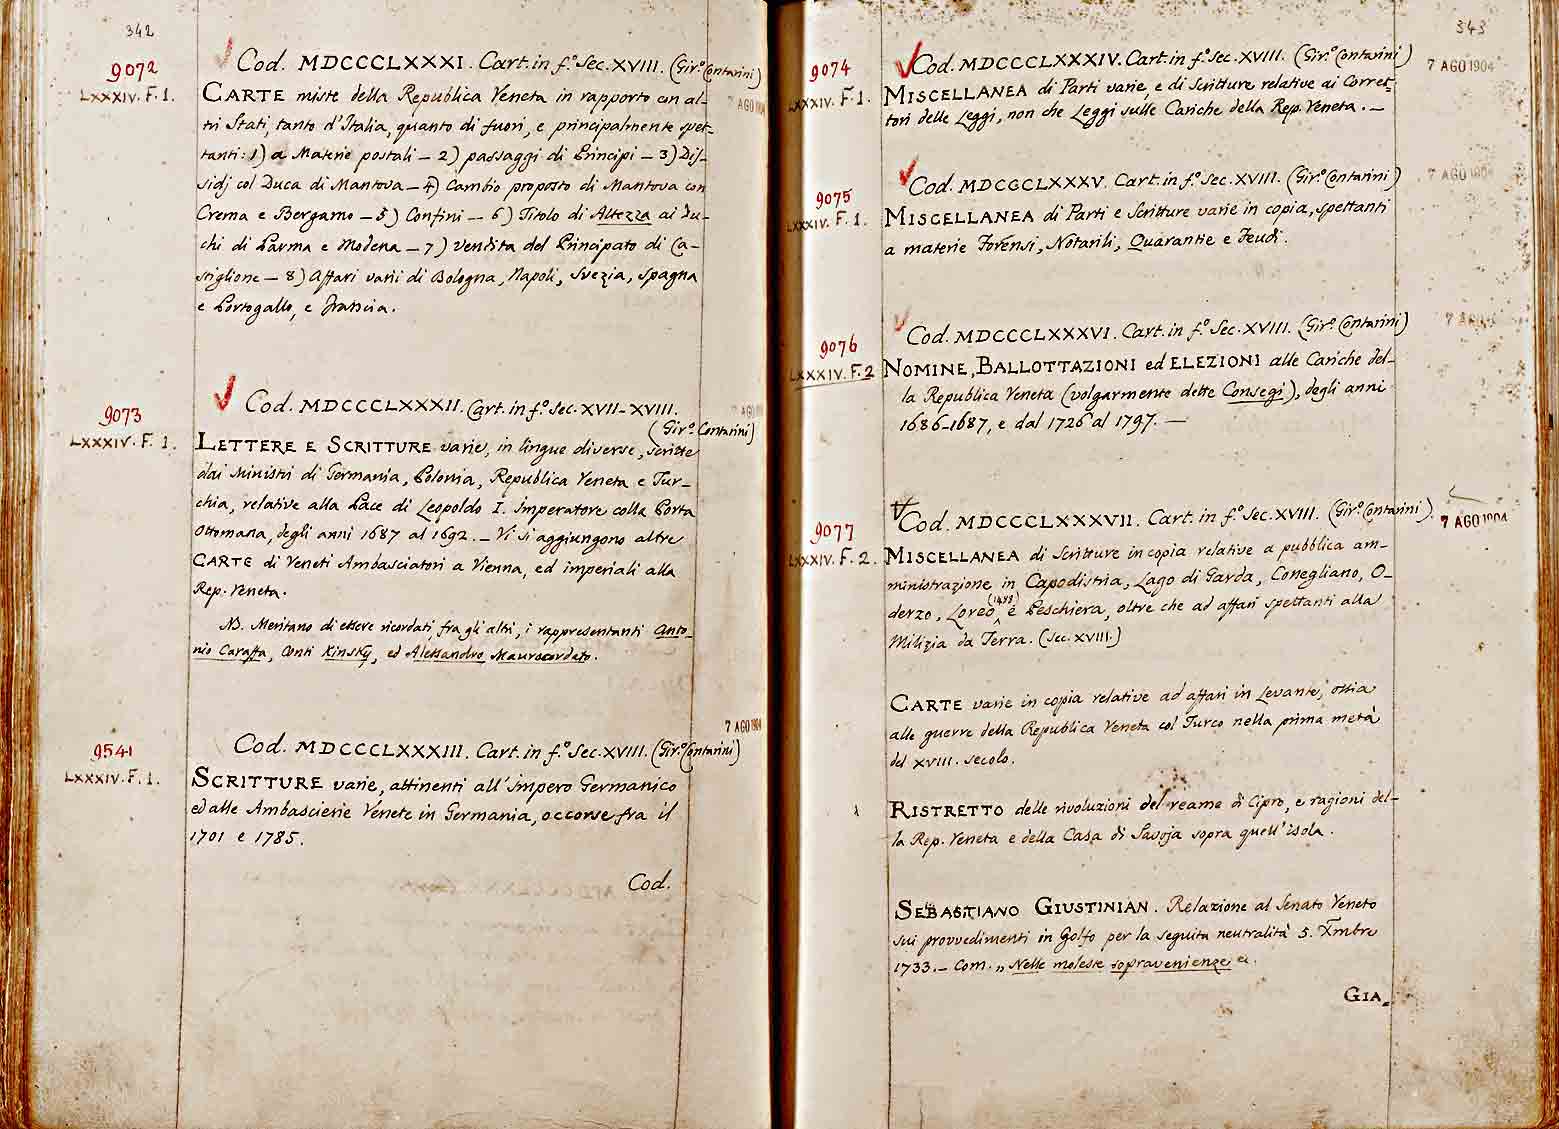 342
9072
LXXXIV. F. 1.
Cod. MDCCCLXXXI. Cart. in f.º Sec. XVIII. (Gir.º Contarini)
7 AGO 1904
CARTE miste della Republica Veneta in rapporto con al-
tri Stati, tanto d'Italia, quanto di fuori, e principalmente spet-
tanti: 1) a Materie postali – 2) passaggi di Principi – 3) Dis-
sidj col Duca di Mantova – 4) Cambio proposto di Mantova con
Crema e Bergamo – 5) Confini – 6) Titolo di Altezza ai Du-
chi di Parma e Modena – 7) vendita del Principato di Ca-
stiglione – 8) Affari varii di Bologna, Napoli, Svezia, Spagna
e Portogallo, e Francia.
9073
LXXXIV. F. 1.
Cod. MDCCCLXXXII. Cart. in f.º Sec. XVII-XVIII.
(Gir.º Contarini)
LETTERE E SCRITTURE varie, in lingue diverse, scritte
dai Ministri di Germania, Polonia, Republica Veneta e Tur-
chia, relative alla Pace di Leopoldo I. Imperatore colla Porta
Ottomana, degli anni 1687 al 1692. – Vi si aggiungono altre
CARTE di Veneti Ambasciatori a Vienna, ed imperiali alla
Rep. Veneta.
NB. Meritano di essere ricordati, fra gli altri, i rappresentanti Anto-
nio Caraffa, Conti Kinsky, ed Alessandro Maurocordato.
7 AGO 1904
9541
LXXXIV. F. 1.
Cod. MDCCCLXXXIII. Cart. in f.º Sec. XVIII. (Gir.º Contarini)
SCRITTURE varie, attinenti all'Impero Germanico
ed alle Ambascierie Venete in Germania, occorse fra il
1701 e 1785.
Cod.
343
9074
LXXXIV. F. 1.
Cod. MDCCCLXXXIV. Cart. in f.º Sec. XVIII. (Gir.º Contarini)
7 AGO 1904
MISCELLANEA di Parti varie, e di Scritture relative ai Corret-
tori delle Leggi, non che Leggi sulle Cariche della Rep. Veneta. –
9075
LXXXIV. F. 1.
Cod. MDCCCLXXXV. Cart. in f.º Sec. XVIII. (Gir.º Contarini)
7 AGO 1904
MISCELLANEA di Parti e Scritture varie in copia, spettanti
a materie Forensi, Notarili, Quarantie e Feudi.
9076
LXXXIV. F. 2
Cod. MDCCCLXXXVI. Cart. in f.º Sec. XVIII. (Gir.º Contarini)
7 AGO
NOMINE, BALLOTTAZIONI ed ELEZIONI alle Cariche del-
la Republica Veneta (volgarmente dette Consegi), degli anni
1686-1687, e dal 1726 al 1797. –
9077
LXXXIV. F. 2.
Cod. MDCCCLXXXVII. Cart. in f.º Sec. XVIII. (Gir.º Contarini).
7 AGO 1904
MISCELLANEA di Scritture in copia relative a pubblica am-
ministrazione in Capodistria, Lago di Garda, Conegliano, O-
derzo, Loreo (1498) e Peschiera, oltre che ad affari spettanti alla
Milizia da Terra. (Sec. XVIII.)
CARTE varie in copia relative ad affari in Levante, ossia
alle guerre della Republica Veneta col Turco nella prima metà
del XVIII. secolo.
RISTRETTO delle rivoluzioni del reame di Cipro, e ragioni del-
la Rep. Veneta e della Casa di Savoja sopra quell'isola.
SEBASTIANO GIUSTINIAN. Relazione al Senato Veneto
sui provvedimenti in Golfo per la seguita neutralità 5. Xmbre
1733. – Com. „Nelle moleste sopravenienze
GIA-